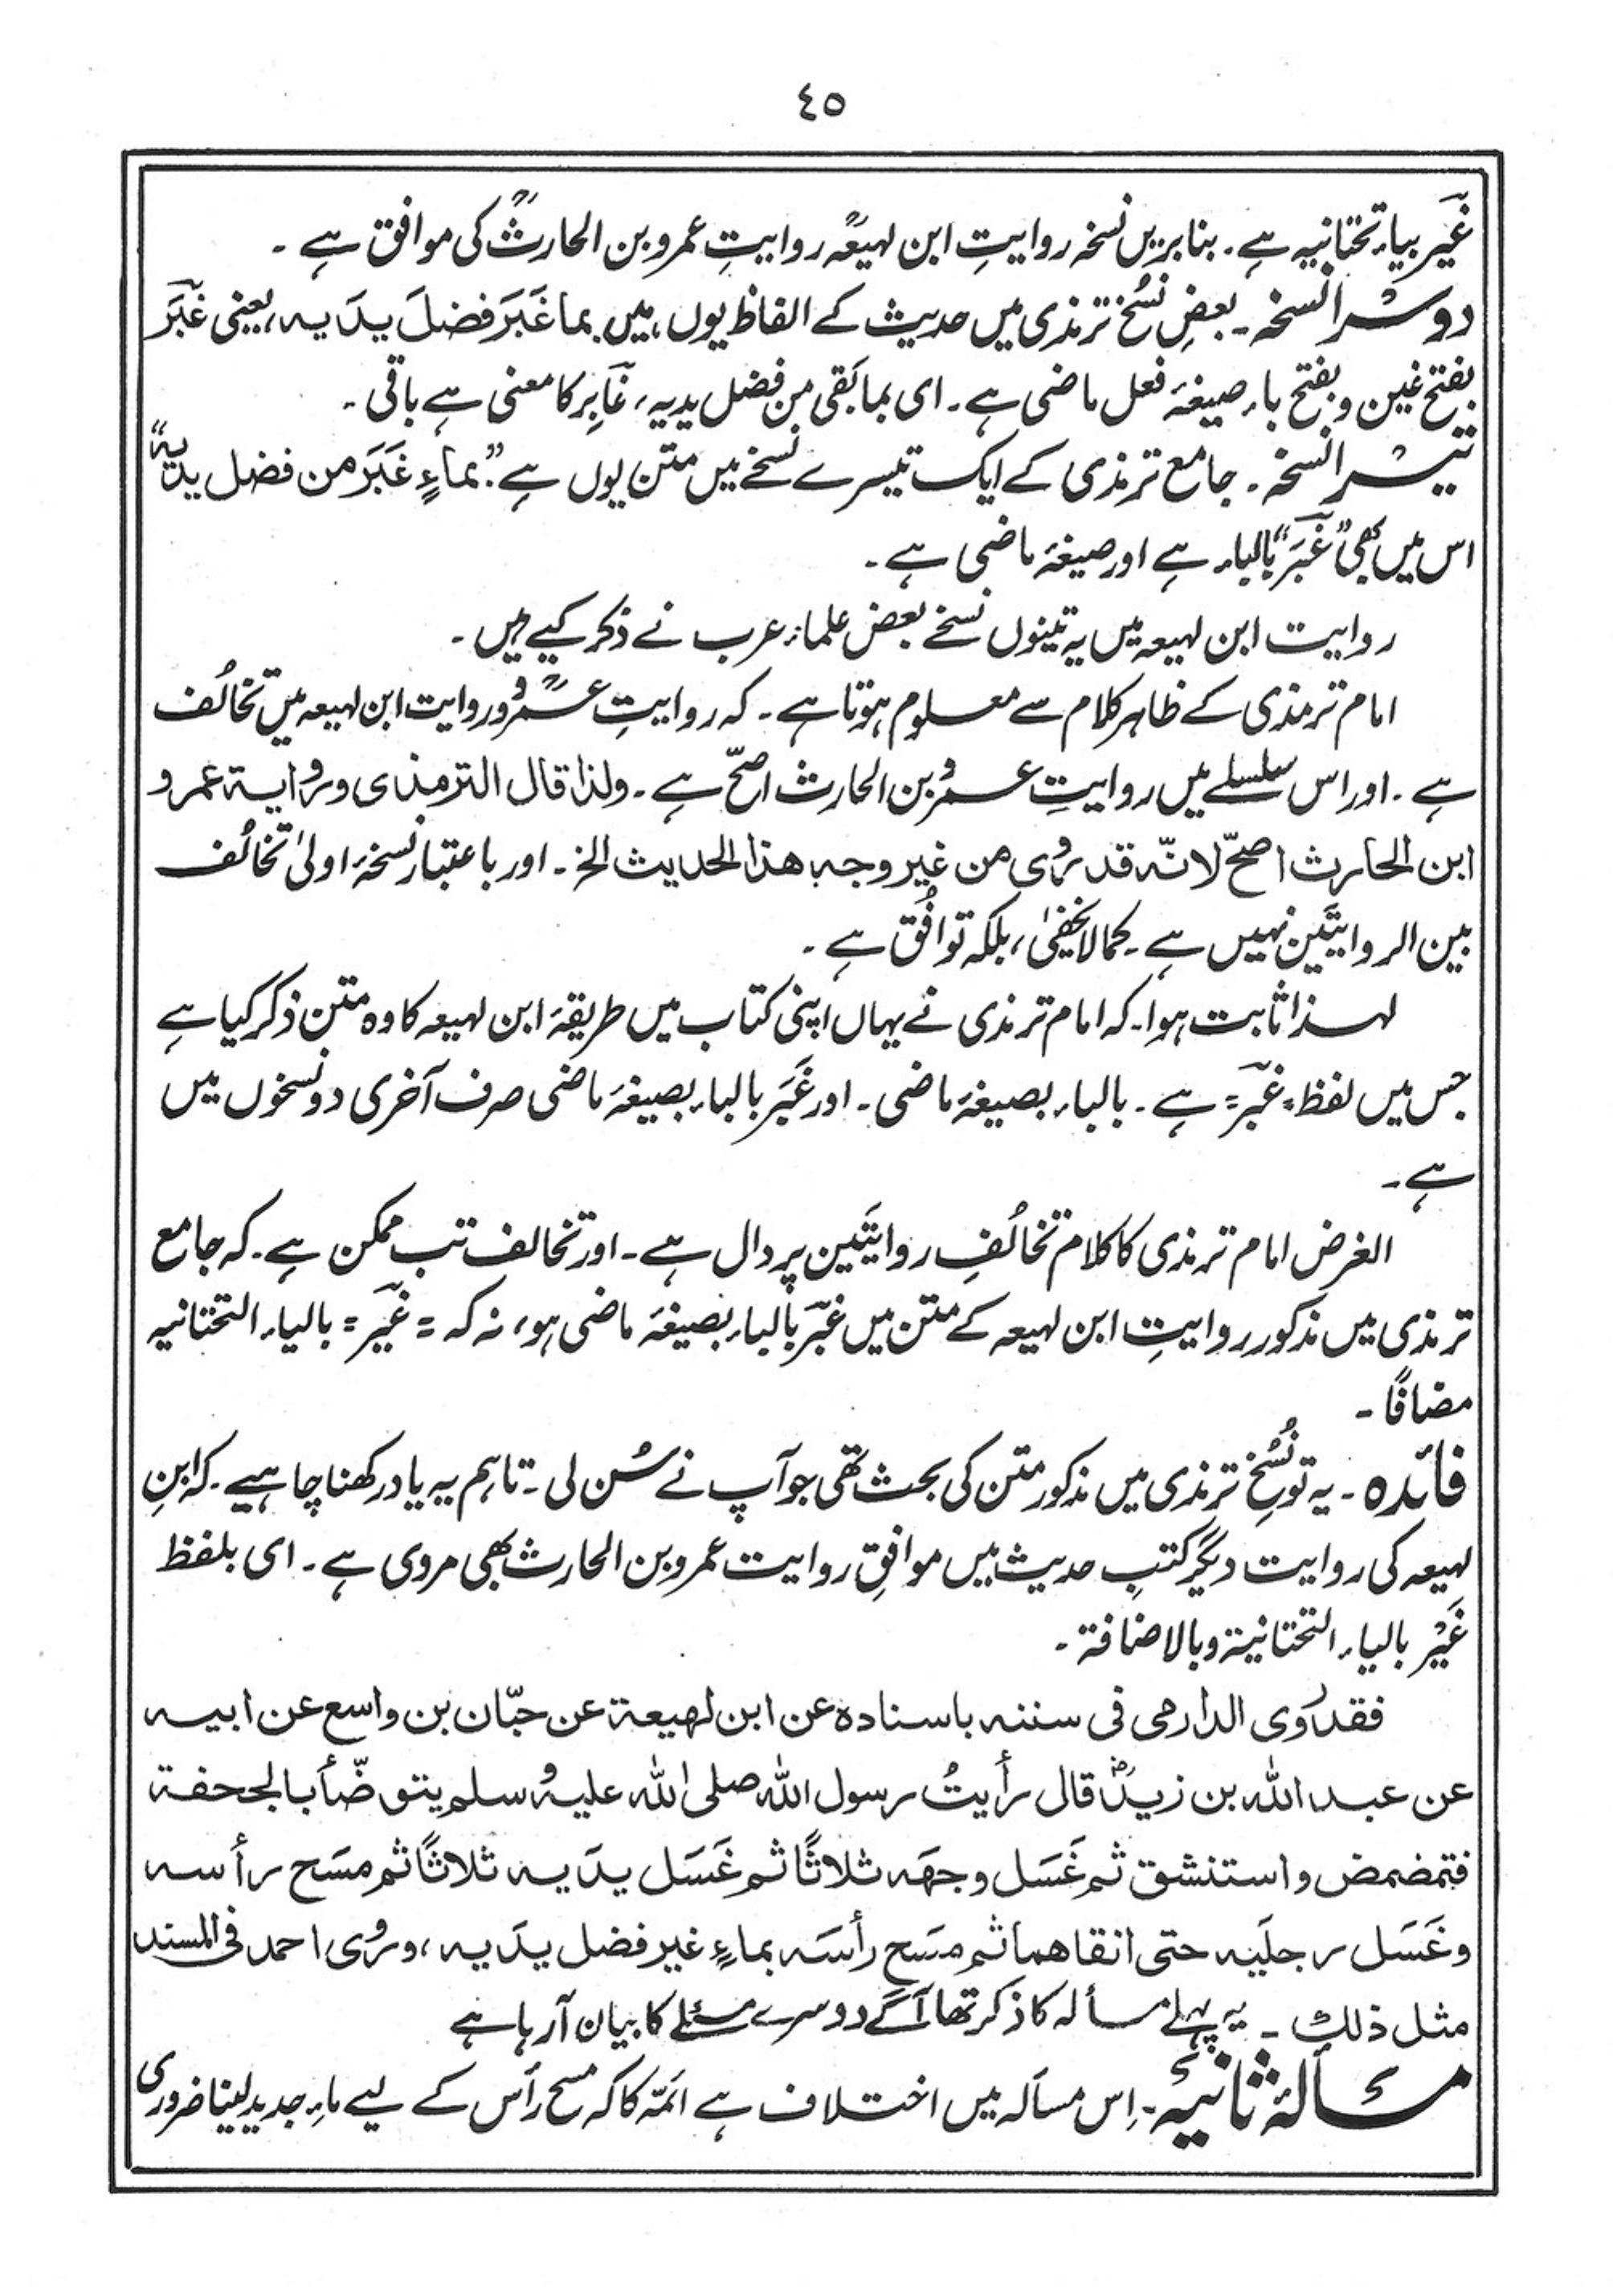 ٤٥
غَیر بیاء تختانیہ ہے ۔ بنا بریں نسخہ روایتِ ابن لہیعہؒ روایتِ عمرو بن الحارثؒ کی موافق ہے ۔
دوسرا نسخہ ۔ بعضِ نُسَخِ ترمذی میں حدیث کے الفاظ یوں ہیں بما غَبَرَ فضلَ یدَیہ ، یعنی غَبَرَ
بفتح غین و بفتح باء صیغۂ فعل ماضی ہے ۔ ای بما بَقی من فضل یدیہ ، غَابِر کا معنی ہے باقی ۔
تیسرا نسخہ ۔ جامع ترمذی کے ایک تیسرے نسخے میں متن یوں ہے ”بماءٍ غَبَرَ من فضل یدیہ“
اس میں بھی ”غَبَرَ“ بالباء ہے اور صیغۂ ماضی ہے ۔
روایت ابن لہیعہ میں یہ تینوں نسخے بعض علماء عرب نے ذکر کیے ہیں ۔
امام ترمذی کے ظاہر کلام سے معلوم ہوتا ہے ۔ کہ روایتِ عمروؒ و روایت ابن لہیعہ میں تخالُف
ہے ۔ اور اس سلسلے میں روایتِ عمرو بن الحارث اصحّ ہے ۔ ولذا قال الترمذی وروایۃ عمرو
ابن الحارث اصحّ لانّہ قد رُوِی من غیر وجہ ھذا الحدیث الخ ۔ اور باعتبار نسخۂ اولیٰ تخالُف
بین الروایتَین نہیں ہے ۔ کما لا یخفیٰ ، بلکہ توافُق ہے ۔
لہذا ثابت ہوا ۔ کہ امام ترمذی نے یہاں اپنی کتاب میں طریقۂ ابن لہیعہ کا وہ متن ذکر کیا ہے
جس میں لفظ = غبَرَ = ہے ۔ بالباء بصیغۂ ماضی ۔ اور غَبَرَ بالباء بصیغۂ ماضی صرف آخری دو نسخوں میں
ہے ۔
الغرض امام ترمذی کا کلام تخالُفِ روایتَین پر دال ہے ۔ اور تخالف تب ممکن ہے ۔ کہ جامع
ترمذی میں مذکور روایتِ ابن لہیعہ کے متن میں غبَرَ بالباء بصیغۂ ماضی ہو ، نہ کہ = غَیر = بالیاء التحتانیہ
مضافًا ۔
فائدہ ۔ یہ تو نُسَخِ ترمذی میں مذکور متن کی بحث تھی جو آپ نے سُن لی ۔ تاہم یہ یاد رکھنا چاہیے ۔ کہ ابنِ
لہیعہ کی روایت دیگر کتبِ حدیث میں موافقِ روایت عمرو بن الحارث بھی مروی ہے ۔ ای بلفظ
غَیْر بالیاء التحتانیۃ وبالاضافۃ ۔
فقد رَوی الدارمی فی سننہ باسنادہ عن ابن لھیعۃ عن حبّان بن واسع عن ابیہ
عن عبد اللہ بن زیدؓ قال رأیتُ رسول اللہ صلی اللہ علیہ وسلم یتوضّأ بالجحفۃ
فتمضمض واستنشق ثم غَسَل وجھَہ ثلاثًا ثم غَسَل یدَیہ ثلاثًا ثم مسَح رأسہ
وغَسَل رجلَیہ حتی انقاھما ثم مسَح رأسَہ بماءٍ غیر فضل یدَیہ ، وروی احمد فی المسند
مثل ذلک ۔ یہ پہلے مسألہ کا ذکر تھا آگے دوسرے مسئلے کا بیان آرہا ہے
مسألۂ ثانیہ ۔ اِس مسألہ میں اختلاف ہے ائمّہ کا کہ مسح رأس کے لیے ماءِ جدید لینا ضروری